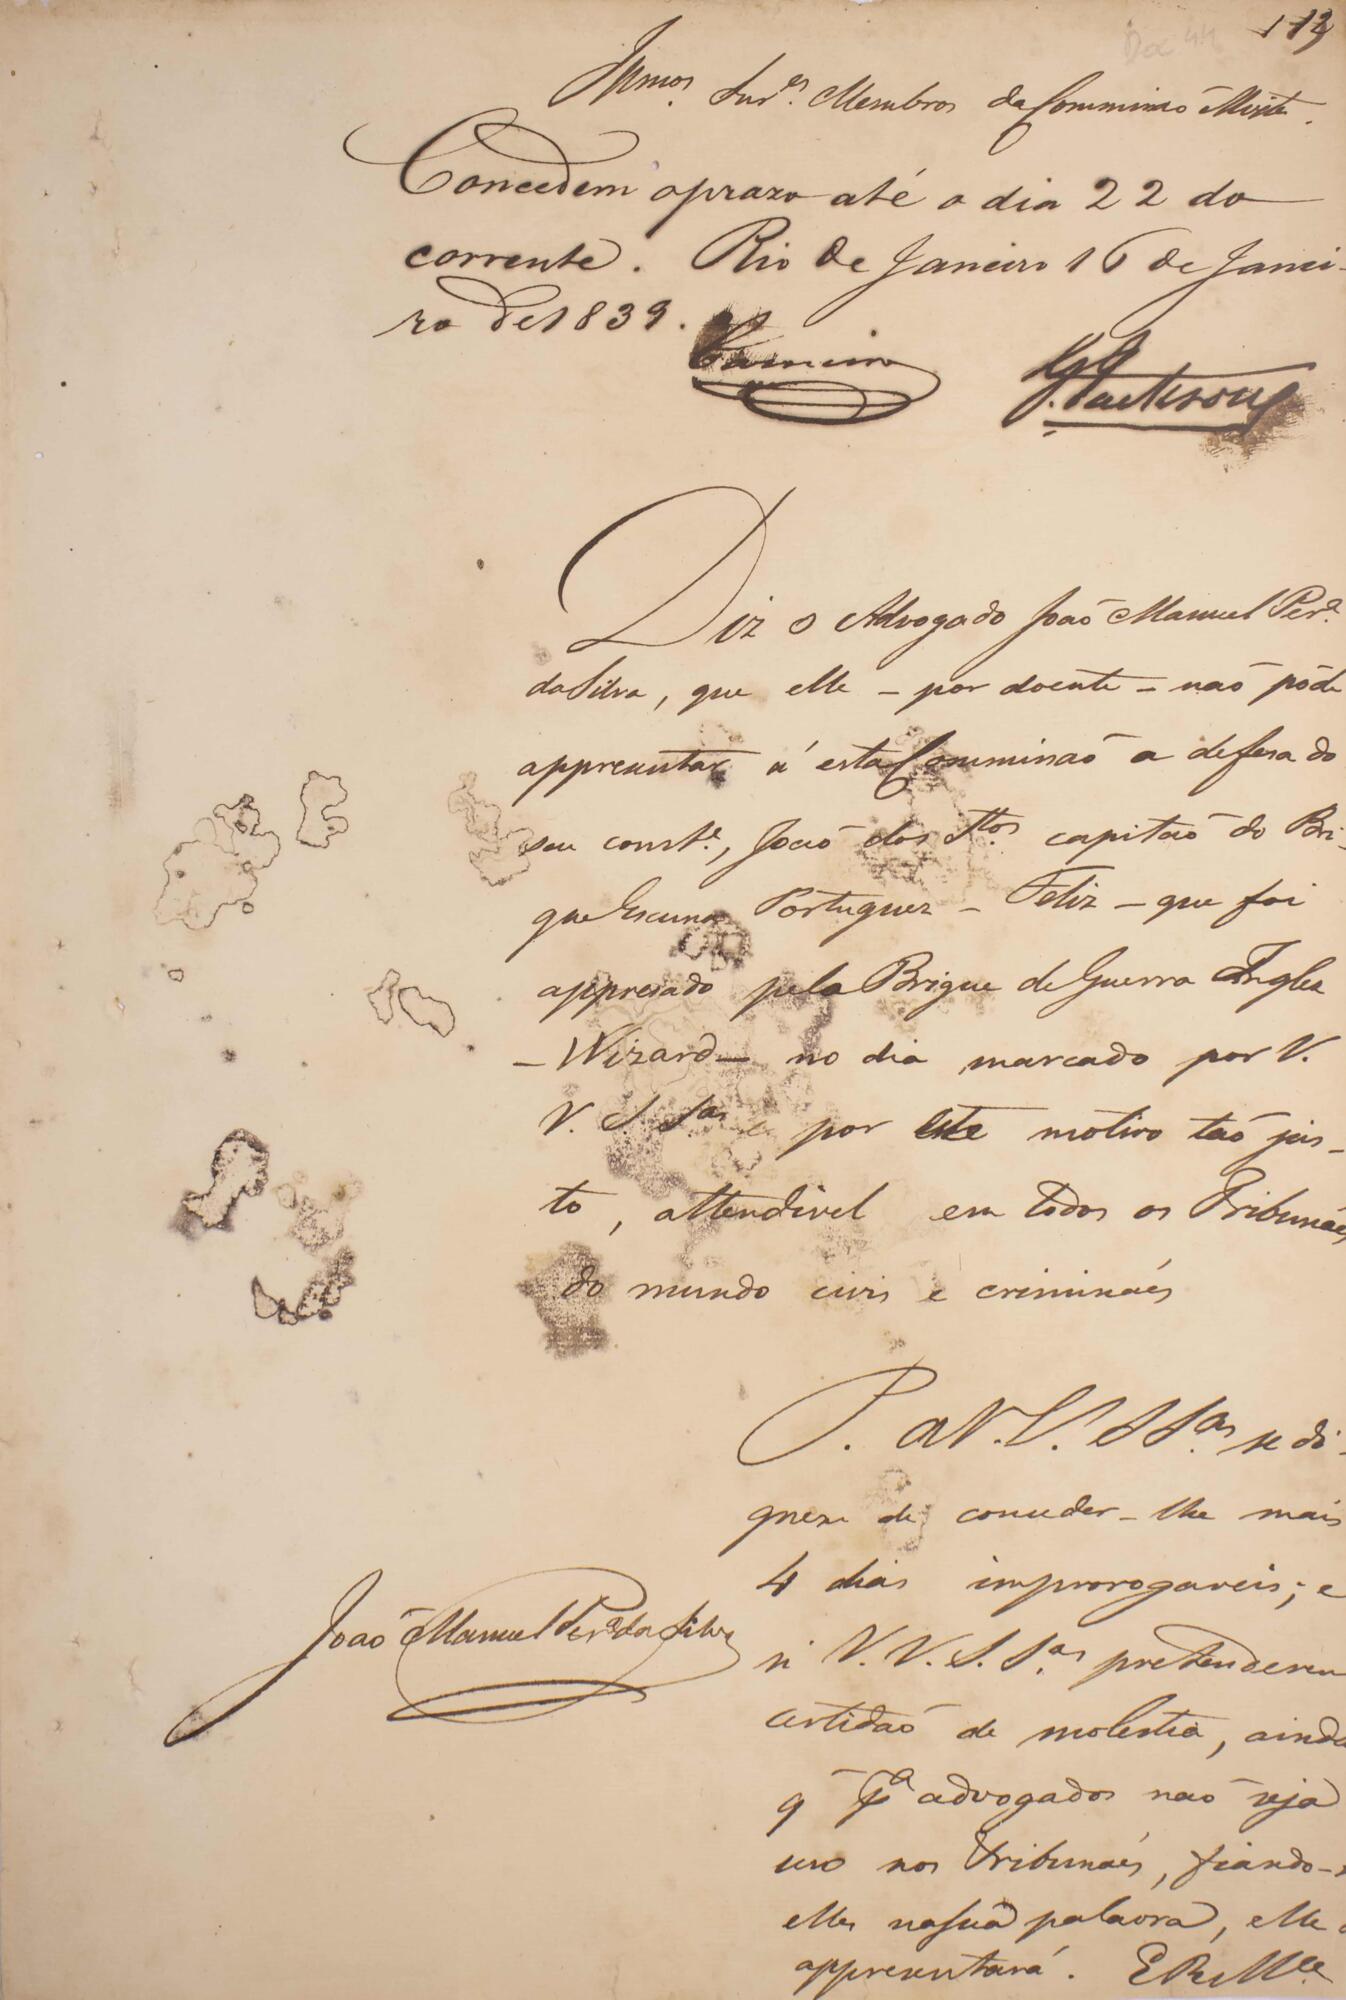 Doc 44
113
Illmos. Snr.es Membros da Commissaõ Mixta.
Concedem o prazo até o dia 22 do
corrente. Rio de Janeiro 16 de Janei-
ro de 1839.
Carneiro
Diz o Advogado Joaõ Manuel Per.a
da Silva, que elle - por doente - naõ póde
appresentar á esta Commissaõ a defesa do
seu const.e, Joaõ dos S.tos capitaõ do Bri-
gue Escuna Portuguez - Feliz - que foi
appresado pela Brigue de Guerra Inglez
- Wizard - no dia marcado por V.
V. S. S.as e por este motivo taõ jus-
to, attendivel em todos os Tribunaes
do mundo civis e criminaés
P. a V. V. S. S.as se di-
gnem de conceder-lhe mais
4 dias improrogaveis; e
si V. V. S. S.as pretenderem
certidaõ de molestia, ainda
q̃ p.a advogados naõ seja
uso nos Tribunaés, fiando-se
elles na sua palavra, elle a
appresentará. E R M.ce
Joaõ Manuel Per.a da Silva